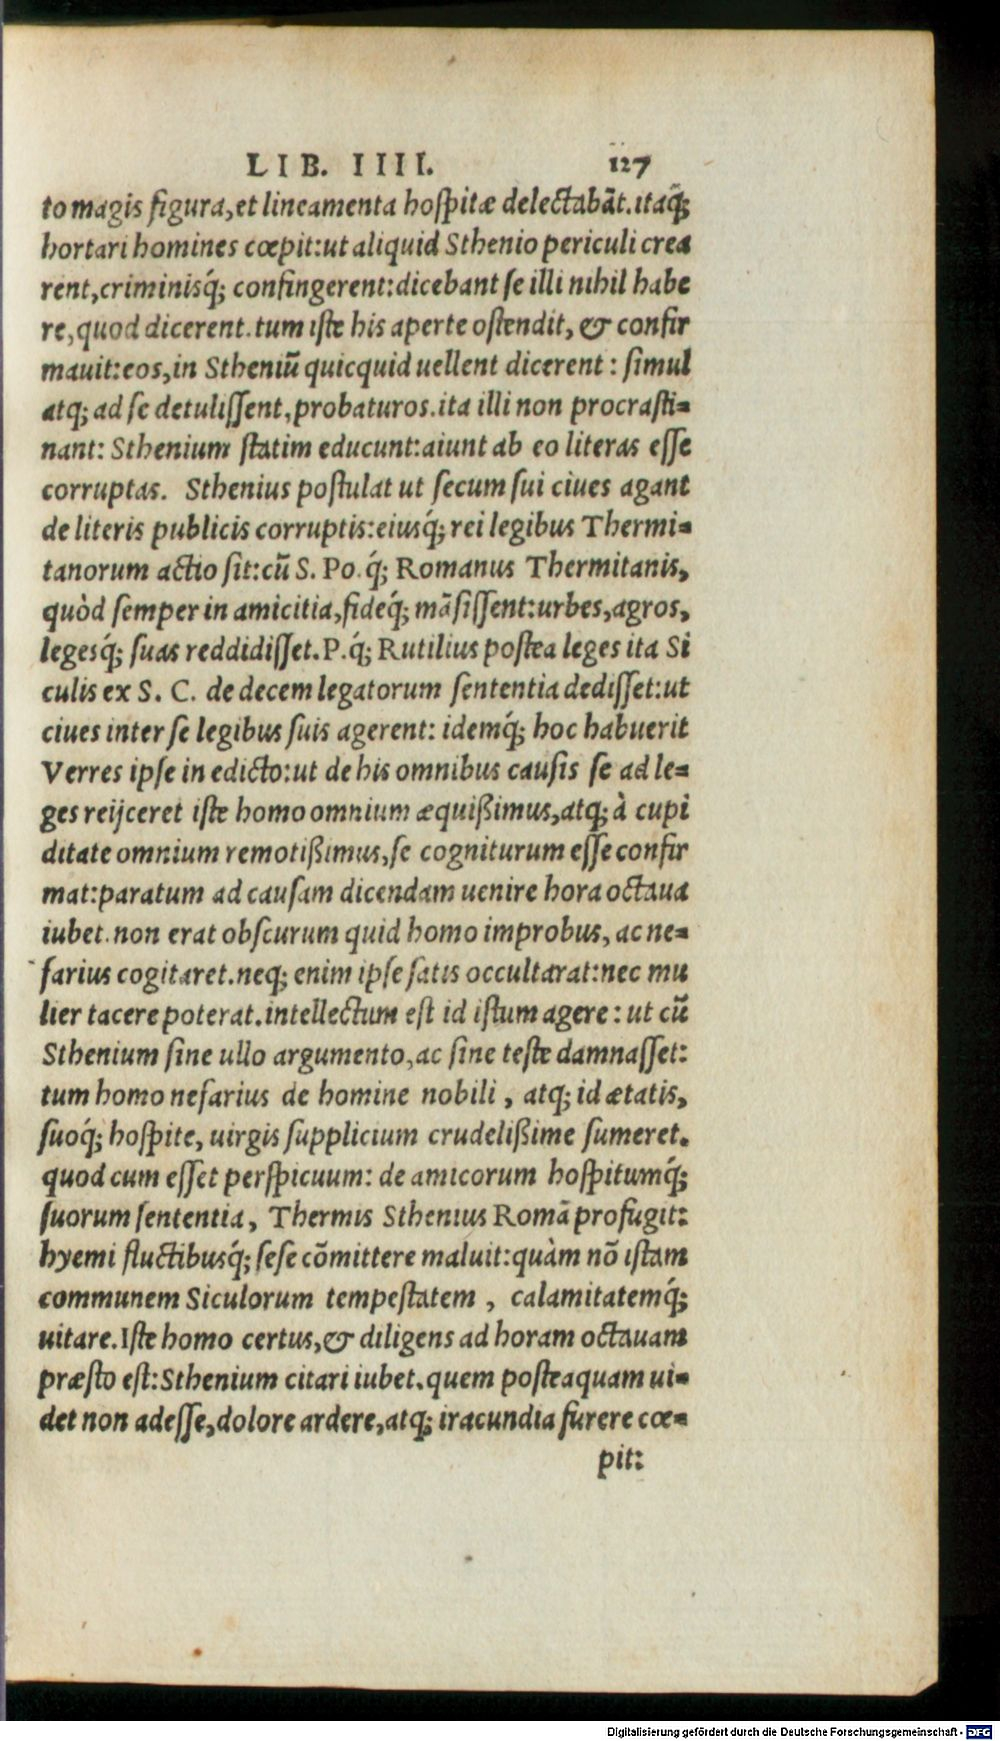 LIB. IIII. 127
to magis figura, et lineamenta hoſpitæ delectabãt. itaq́;
hortari homines cœpit: ut aliquid Sthenio periculi crea
rent, criminisq́; confingerent: dicebant ſe illi nihil habe
re, quod dicerent. tum iſte his aperte oſtendit, & confir
mauit: eos, in Stheniũ quicquid uellent dicerent: ſimul
atq; ad ſe detuliſſent, probaturos. ita illi non procraſti-
nant: Sthenium ſtatim educunt: aiunt ab eo literas eſſe
corruptas. Sthenius poſtulat ut ſecum ſui ciues agant
de literis publicis corruptis: eiusq́; rei legibus Thermi-
tanorum actio ſit: cũ S. Po. q́; Romanus Thermitanis,
quòd ſemper in amicitia, fideq́; mãſiſſent: urbes, agros,
legesq́; ſuas reddidiſſet. P. q́; Rutilius poſtea leges ita Si
culis ex S. C. de decem legatorum ſententia dediſſet: ut
ciues inter ſe legibus ſuis agerent: idemq́; hoc habuerit
Verres ipſe in edicto: ut de his omnibus cauſis ſe ad le-
ges reijceret iſte homo omnium æquißimus, atq; à cupi
ditate omnium remotißimus, ſe cogniturum eſſe confir
mat: paratum ad cauſam dicendam uenire hora octaua
iubet. non erat obſcurum quid homo improbus, ac ne-
farius cogitaret. neq; enim ipſe ſatis occultarat: nec mu
lier tacere poterat. intellectum eſt id iſtum agere: ut cũ
Sthenium ſine ullo argumento, ac ſine teſte damnaſſet:
tum homo nefarius de homine nobili, atq; id ætatis,
ſuoq́; hoſpite, uirgis ſupplicium crudelißime ſumeret.
quod cum eſſet perſpicuum: de amicorum hoſpitumq́;
ſuorum ſententia, Thermis Sthenius Romã profugit:
hyemi fluctibusq́; ſeſe cõmittere maluit: quàm nõ iſtam
communem Siculorum tempeſtatem, calamitatemq́;
uitare. Iſte homo certus, & diligens ad horam octauam
præſto eſt: Sthenium citari iubet. quem poſteaquam ui-
det non adeſſe, dolore ardere, atq; iracundia furere cœ-
pit:
Digitalisierung gefördert durch die Deutsche Forschungsgemeinschaft - DFG